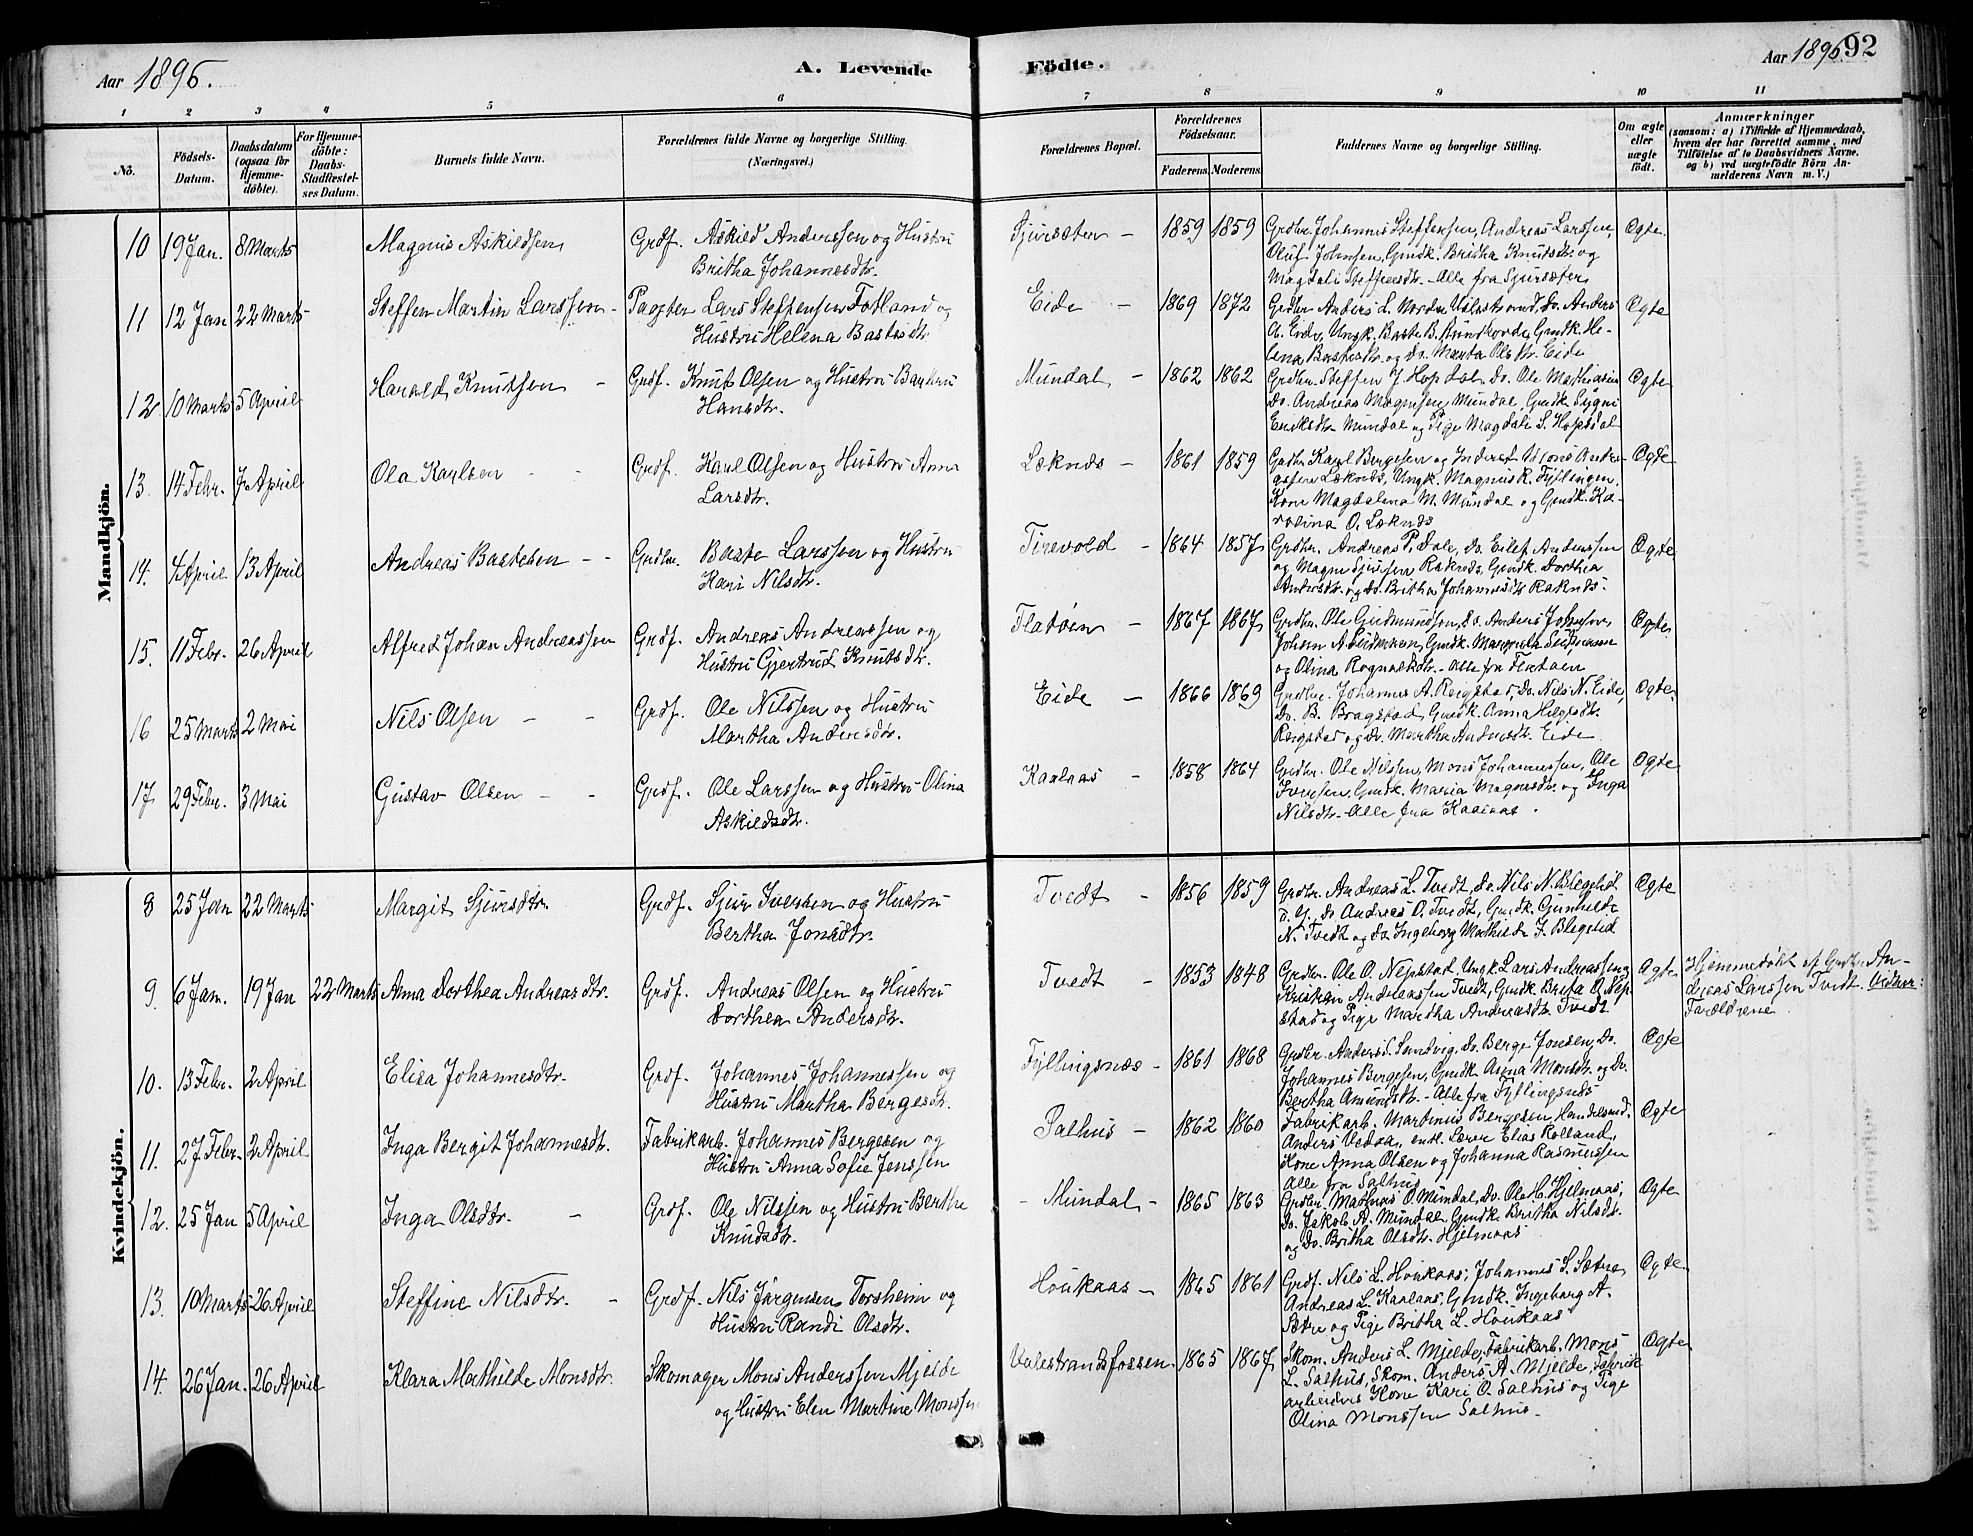 Aar 1896.
A. Levende
Födte.
Aar 1896.
92
1 2 3 4 5 6 7 8 9 10 11
No.
Födsels-
Datum.
Daabsdatum
(ogsaa for
Hjemme-
döbte).
For Hjemme-
döbte:
Daabs-
Stadfæstel-
ses Datum.
Barnets fulde Navn.
Forældrenes fulde Navne og borgerlige Stilling.
(Næringsvei.)
Forældrenes Bopæl.
Forældrenes
Födselsaar.
Faderens. Moderens.
Faddernes Navne og borgerlige Stilling.
Om ægte
eller
uægte
födt.
Anmærkninger
(saasom: a) i Tilfælde af Hjemmedaab,
hvem der har forrettet samme, med
Tilföielse af to Daabsvidners Navne,
og b) ved uægtefödte Börn An-
melderens Navn m. V.)
Mandkjön.
10 19 Jan. 8 Marts Magnus Askildsen Grdf. Askild Anderssen og Hustru
Britha Johannesdtr.
Sjursæter 1859 1859 Grdbr. Johannes Steffensen, Andreas Larssen,
Oluf Johnsen, Gmdk. Britha Knutsdtr. og
Magdali Steffensdtr. - Alle fra Sjursæter
Ægte
11 12 Jan 22 Marts Steffen Martin Larssen - Pagter Lars Steffensen Fotland og
Hustru Helena Bastesdtr.
Eide - 1869 1872 Grdbr. Anders L. Nordre Valestrand, Do. Anders
A. Eide, Ungk. Baste B. Gmdk. He-
lena Bastesdtr. og Do. Marta Olsdtr. Eide
Ægte
12 10 Marts 5 April Harald Knutsen - Grdf. Knut Olsen og Hustru Barbru
Hansdtr.
Mundal - 1862 1862 Grdbr. Steffen J. Hopsdal, Do. Ole Mathiassen
Do. Andreas Magnesen Mundal, Gmdk. Sygni
Eriksdtr. Mundal og Pige Magdali S. Hopsdal
Ægte
13. 14 Febr. 7 April Ola Karlsen - - Grdf. Karl Olsen og Hustru Anna
Larsdtr.
Læknes - 1861 1859 Grdbr. Karl Bergesen og Inderst Mons Andre-
assen Læknes, Ungk. Magnus R. Fyllingen,
Kone Magdalena M. Mundal og Gmdk. Ka-
rolina O. Læknes
Ægte
14. 4 April 13 April Andreas Bastesen - - Grdbr. Baste Larssen og Hustru
Kari Nilsdtr.
Tirevold - 1864 1857 Grdbr. Andreas P. Dale, Do. Eilef Anderssen
og Magne Sjursen Raknes, Gmdk. Dorthea
Andersdtr. og Do. Britha Johannesdtr. Raknes.
Ægte
15. 11 Febr. 26 April Alfred Johan Andreassen Grdf. Andreas Andreassen og
Hustru Gjertrud Knutsdtr.
Flatöen - 1867 1867 Grdbr. Ole Gudmundsen, Do. Anders Johnsen,
Johan A. Gmdk. Margreta
og Olina Rognaldsdtr. - Alle fra Flatöen
Ægte
16 25 Marts 2 Mai Nils Olsen - - Grdf. Ole Nilssen og Hustru
Martha Andersdtr.
Eide - 1866 1869 Grdbr. Johannes A. Reigstad, Do. Nils N. Eide,
Do. B. Bragstad, Gmdk. Anna Helgesdtr.
Reigstad og Do. Martha Andersdtr. Eide
Ægte
17 29 Febr. 3 Mai Gustav Olsen - - Grdf. Ole Larssen og Hustru Olina
Askildsdtr.
Kaalaas - 1858 1864 Grdbr. Ole Nilssen, Mons Johannessen, Ole
Iversen, Gmdk. Maria Magnesdtr. og Inga
Nilsdtr. - Alle fra Kaalaas.
Ægte
Kvindekjön.
8 25 Jan 22 Marts Margit Sjursdtr. Grdf. Sjur Iversen og Hustru
Bertha Jonsdtr.
Tvedt - 1856 1859 Grdbr. Andreas L. Tvedt, Do. Nils N. Blegslid
d. y., Do. Andreas O. Tvedt, Gmdk. Gunhilde
N. Tvedt og Do. Ingeborg Mathilde J. Blegslid
Ægte
9. 6 Jan. 19 Jan 22 Marts Anna Dorthea Andreasdtr. Grdf. Andreas Olsen og Hustru
Dorthea Andersdtr.
Tvedt - 1853 1848 Grdbr. Ole O. Nepstad, Ungk. Lars Andreassen og
Kristian Andreassen Tvedt, Gmdk. Brita O. Nep-
stad og Pige Martha Andreasdtr. Tvedt
Ægte
Hjemmedöbt af Grdbr. An-
dreas Larssen Tvedt. Vidner:
Forældrene
10. 13 Febr. 2 April Elisa Johannesdtr. Grdf. Johannes Johannessen og
Hustru Martha Bergesdtr.
Fyllingsnæs - 1861 1868 Grdbr. Anders J. Sandvig, Do. Berge Jonsen, Do.
Johannes Bergesen, Gmdk. Anna Monsdtr. og Do.
Bertha Amundsdtr. - Alle fra Fyllingsnes
Ægte
11. 27 Febr. 2 April Inga Bergit Johannesdtr. Fabrikarb. Johannes Bergesen og
Hustru Anna Sofie Jenssen
Salhus - 1862 1860 Fabrikarb. Martinus Bergesen, Handelsmd.
Anders Vedaa, emt. Lærer Elias Rolland,
Kone Anna Olsen og Johanna Rasmussen
Alle fra Salhus
Ægte
12. 25 Jan 5 April Inga Olsdtr. - Grdf. Ole Nilssen og Hustru Berthe
Knudsdtr.
- Mundal - 1865 1863 Grdbr. Mathias O. Mundal, Do. Ole H. Hjelmaas,
Do. Jakob A. Mundal, Gmdk. Britha Nilsdtr.
og Do. Britha Olsdtr. Hjelmaas
Ægte
13. 10 Marts 26 April Steffine Nilsdtr. - Grdf. Nils Jörgensen Torsheim og
Hustru Randi Olsdtr.
Houkaas - 1865 1861 Grdf. Nils L. Houkaas, Johannes S. Sætre,
Andreas L. Kaalaas, Gmdk. Ingeborg A.
Sætre og Pige Britha L. Houkaas
Ægte
14. 26 Jan. 26 April Klara Mathilde Monsdtr. Skomager Mons Anderssen Mjelde
og Hustru Elen Martine Monssen
Valestrandsfossen. 1865 1867 Skom. Anders L. Mjelde, Fabrikarb. Mons
L. Salhus, Skom. Anders A. Mjelde, Fabrik
arbeiders Kone Kari O. Salhus og Pige
Olina Monssen Salhus.
Ægte